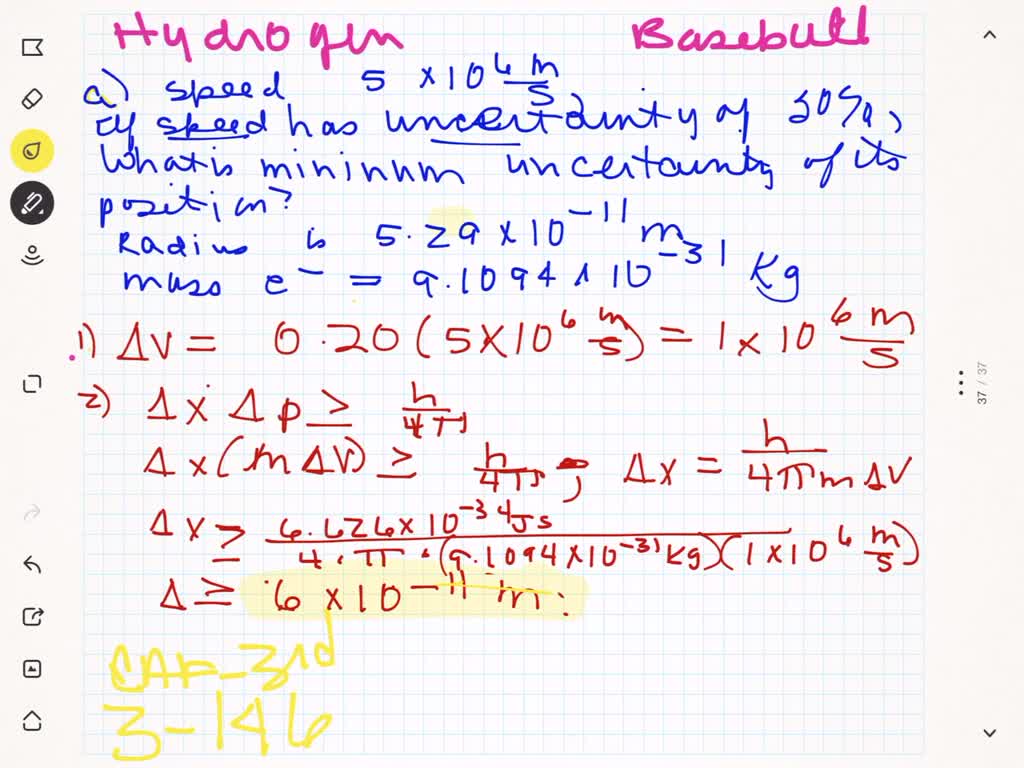 Hydrogen Baseball
a) speed 5 × 10^6 m/s
If speed has uncertainty of 20%,
What is mininum uncertainty of its
position?
Radius is 5.29 × 10^-11 m
mass e^- = 9.1094 × 10^-31 Kg
1) ΔV = 0.20 (5×10^6 m/s) = 1 × 10^6 m/s
2) Δx Δp ≥ h/4π
Δx(mΔV) ≥ h/4π ; Δx = h/4πmΔV
Δx ≥ 6.626×10^-34 Js / 4·π·(9.1094×10^-31 Kg)(1×10^6 m/s)
Δ ≥ 6 × 10^-11 m.
3rd
3-146
37 / 37